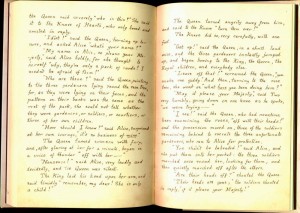 the Queen said severely "who is this?" She said
it to the Knave of Hearts, who only bowed and
smiled in reply.
"Idiot!" said the Queen, tossing up her
nose, and asked Alice "what's your name?"
"My name is Alice, so please your
majesty," said Alice boldly, for she thought to
herself "why, they're only a pack of cards! I
needn't be afraid of them!"
"Who are these?" said the Queen, pointing
to the three gardeners lying round the rose tree,
for, as they were lying on their faces, and the
pattern on their backs was the same as the
rest of the pack, she could not tell whether
they were gardeners, or soldiers, or courtiers, or
three of her own children.
"How should I know?" said Alice, surprised
at her own courage, "it's no business of mine."
The Queen turned crimson with fury,
and, after glaring at her for a minute, began in
a voice of thunder "off with her—"
"Nonsense!" said Alice, very loudly and
decidedly, and the Queen was silent.
The King laid his hand upon her arm, and
said timidly "remember, my dear! She is only
a child!"
The Queen turned angrily away from him,
and said to the Knave "turn them over!"
The Knave did so, very carefully, with one
foot.
"Get up!" said the Queen, in a shrill loud
voice, and the three gardeners instantly jumped
up, and began bowing to the King, the Queen, the
Royal children, and everybody else.
"Leave off that!" screamed the Queen, "you
make me giddy." And then, turning to the rose
tree, she went on "what have you been doing here?"
"May it please your Majesty," said Two,
very humbly, going down on one knee as he spoke,
"we were trying—"
"I see!" said the Queen, who had meantime
been examining the roses, "off with their heads!"
and the procession moved on, three of the soldiers
remaining behind to execute the three unfortunate
gardeners, who ran to Alice for protection.
"You shan't be beheaded!" said Alice, and
she put them into her pocket: the three soldiers
marched once round her, looking for them, and
then quietly marched off after the others.
"Are their heads off?" shouted the Queen.
"Their heads are gone," the soldiers shouted
in reply, "if it please your Majesty!"